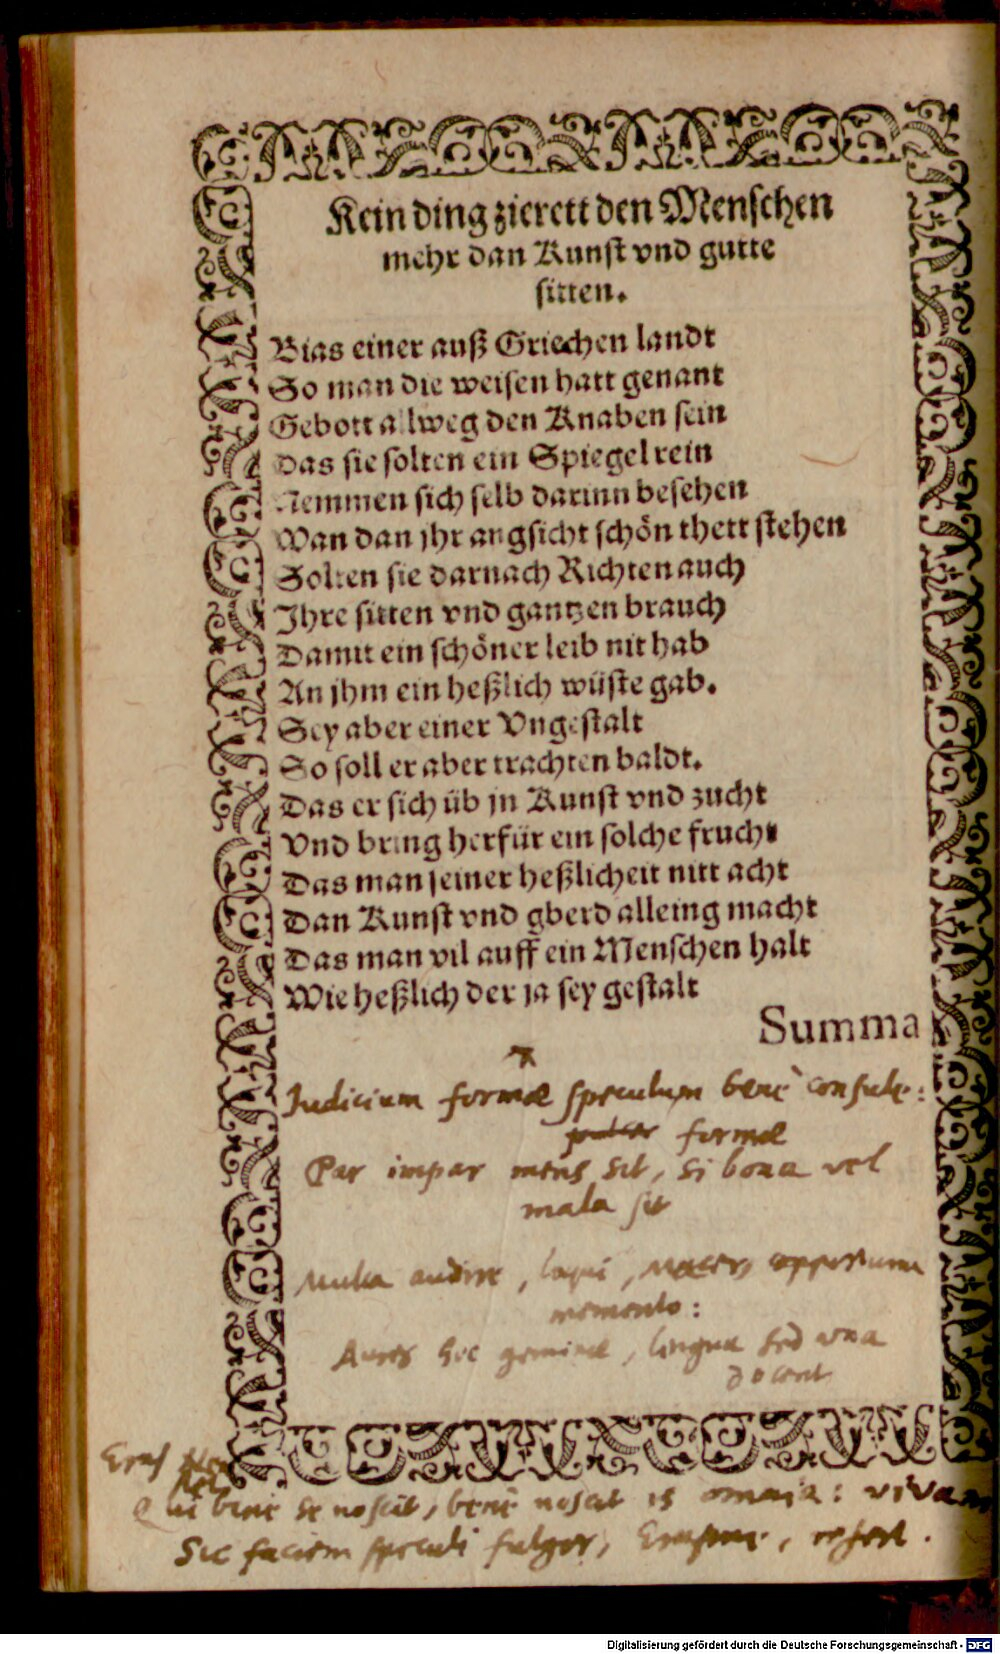 Kein ding zierett den Menschen
mehr dan Kunst vnd gutte
sitten.
Bias einer auß Griechen landt
So man die weisen hatt genant
Gebott allweg den Knaben sein
Das sie solten ein Spiegel rein
Nemmen sich selb darinn besehen
Wan dan jhr angsicht schön thett stehen
Solten sie darnach Richten auch
Ihre sitten vnd gantzen brauch
Damit ein schöner leib nit hab
An jhm ein heßlich wüste gab.
Sey aber einer Vngestalt
So soll er aber trachten baldt.
Das er sich üb jn Kunst vnd zucht
Vnd bring herfür ein solche frucht
Das man seiner heßlicheit nitt acht
Dan Kunst vnd gberd alleing macht
Das man vil auff ein Menschen halt
Wie heßlich der ja sey gestalt
Summa
Iudicium formæ speculum benè consule:
formæ
Par impar mens sit, si bona vel
mala sit
Multa audire, loqui, opportuna
memento:
Aures hoc geminæ, lingua sed vna
docent
Qui benè se noscit, benè noscit is omnia: vivam
Sic faciem speculi fulgor, refert.
Digitalisierung gefördert durch die Deutsche Forschungsgemeinschaft - DFG